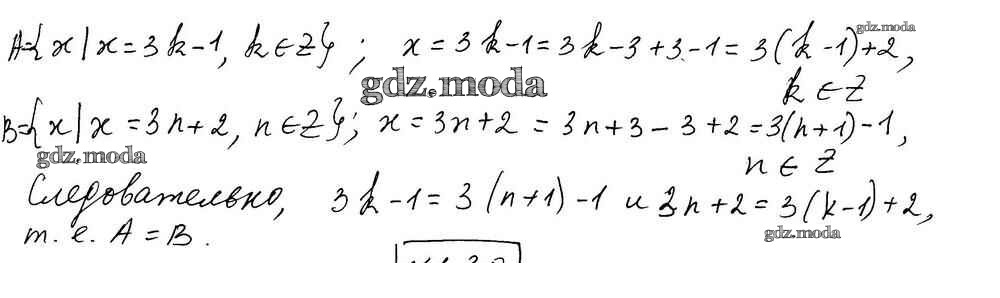 gdz.moda
A={x|x=3k-1, k∈Z}; x=3k-1=3k-3+3-1=3(k-1)+2,
gdz.moda k∈Z
B={x|x=3n+2, n∈Z}; x=3n+2=3n+3-3+2=3(n+1)-1,
gdz.moda n∈Z
Следовательно, 3k-1=3(n+1)-1 и 3n+2=3(k-1)+2,
т.е. A=B. gdz.moda